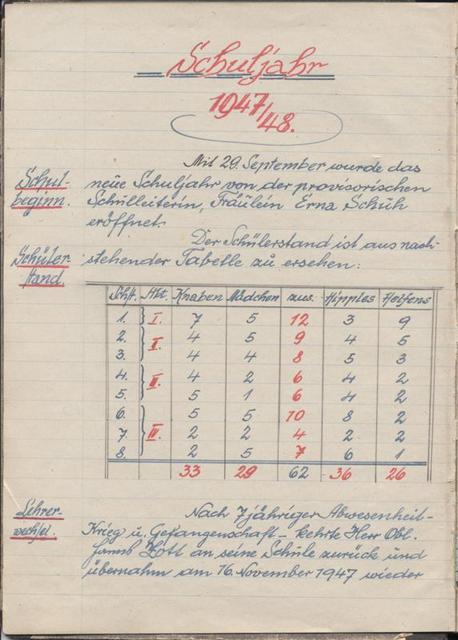 Schuljahr
1947/48.
Mit 29. September wurde das
Schul- neue Schuljahr von der provisorischen
beginn. Schulleiterin, Fräulein Erna Schuh
eröffnet.
Der Schülerstand ist aus nach-
Schüler- stehender Tabelle zu ersehen:
stand.
Schst. Abt. Knaben Mädchen zus. Hipples Hofens
1. I. 7 5 12 3 9
2. II. 4 5 9 4 5
3. 4 4 8 5 3
4. III. 4 2 6 4 2
5. 5 1 6 4 2
6. IV. 5 5 10 8 2
7 2 2 4 2 2
8. 2 5 7 6 1
33 29 62 36 26
Lehrer- Nach 7jähriger Abwesenheit -
wechsel. Krieg u. Gefangenschaft - kehrte Herr Obl.
an seine Schule zurück und
übernahm am 16. November 1947 wieder